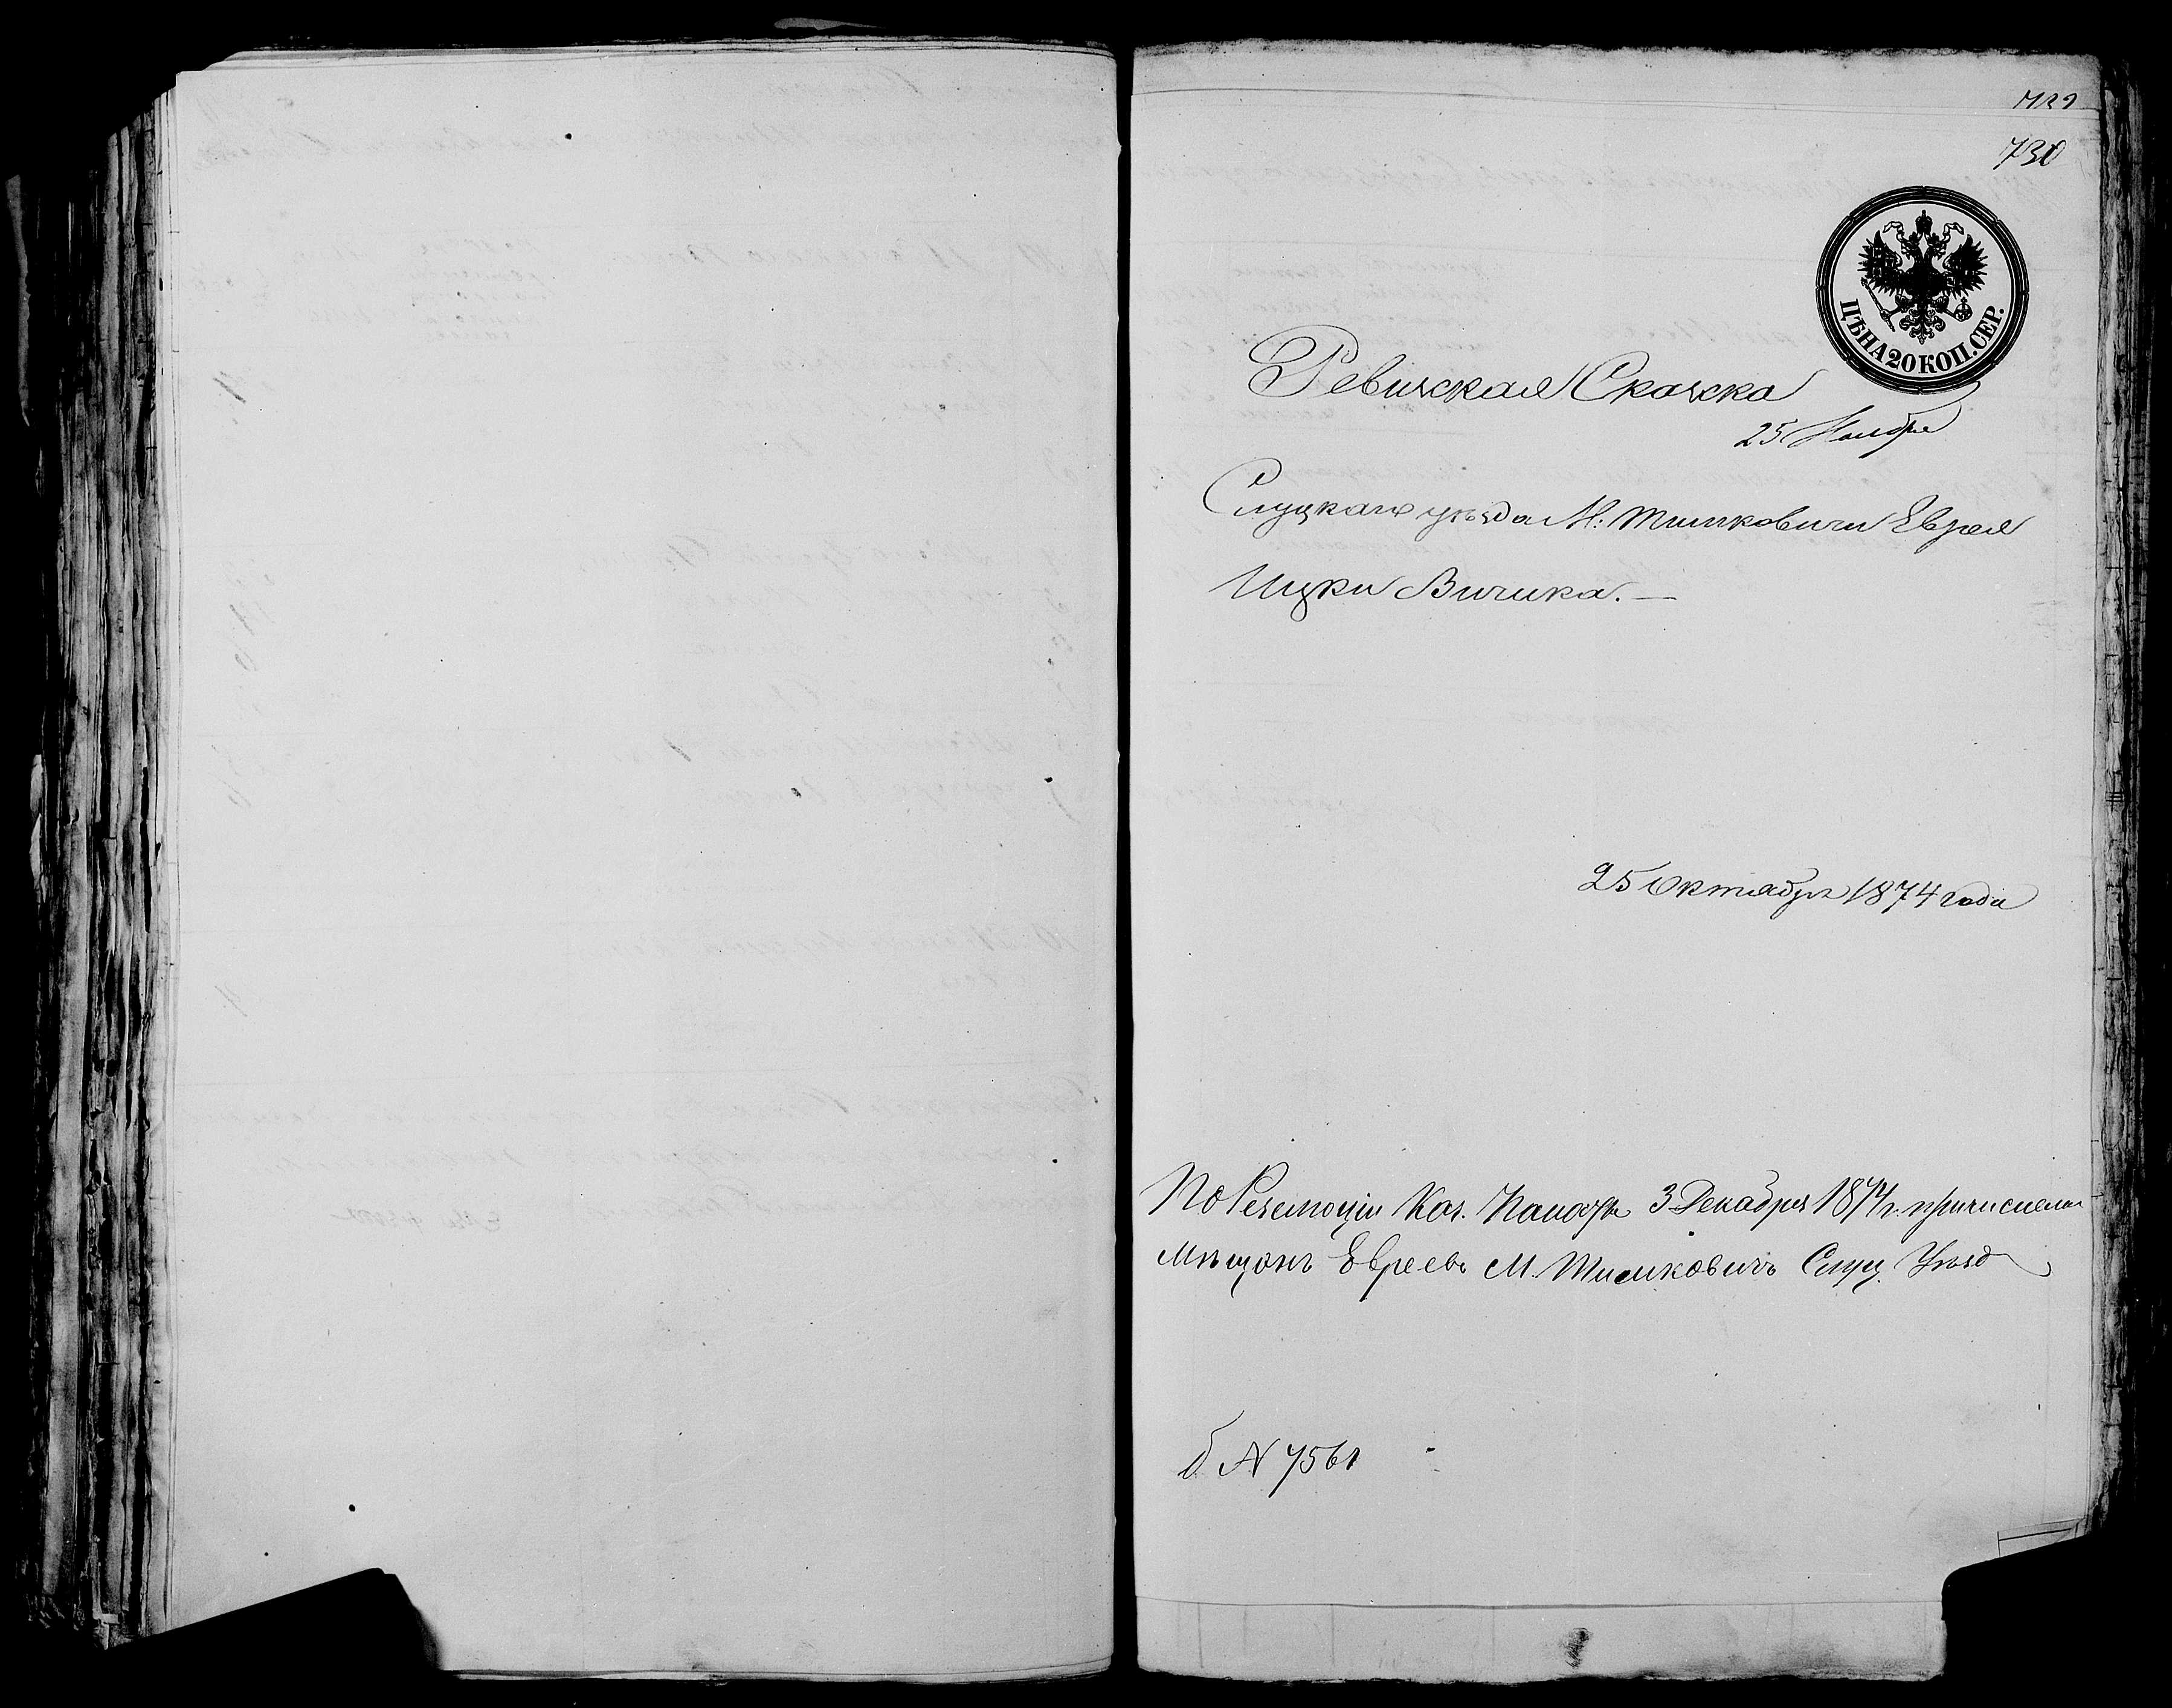 729
730
ЦѢНА 20 КОП. СЕР.
Ревизская Сказка
25 Ноября
Слуцкаго уѣзда М: Тимковичи Еврея
Ицки Вигика.—
25 Октября 1874 года
По Резолюціи Каз. Палаты 3 Декабря 1874 г. причислены
Мѣщанъ Евреевъ М. Тимковичъ Слуц. Уѣзд
б. N 7561